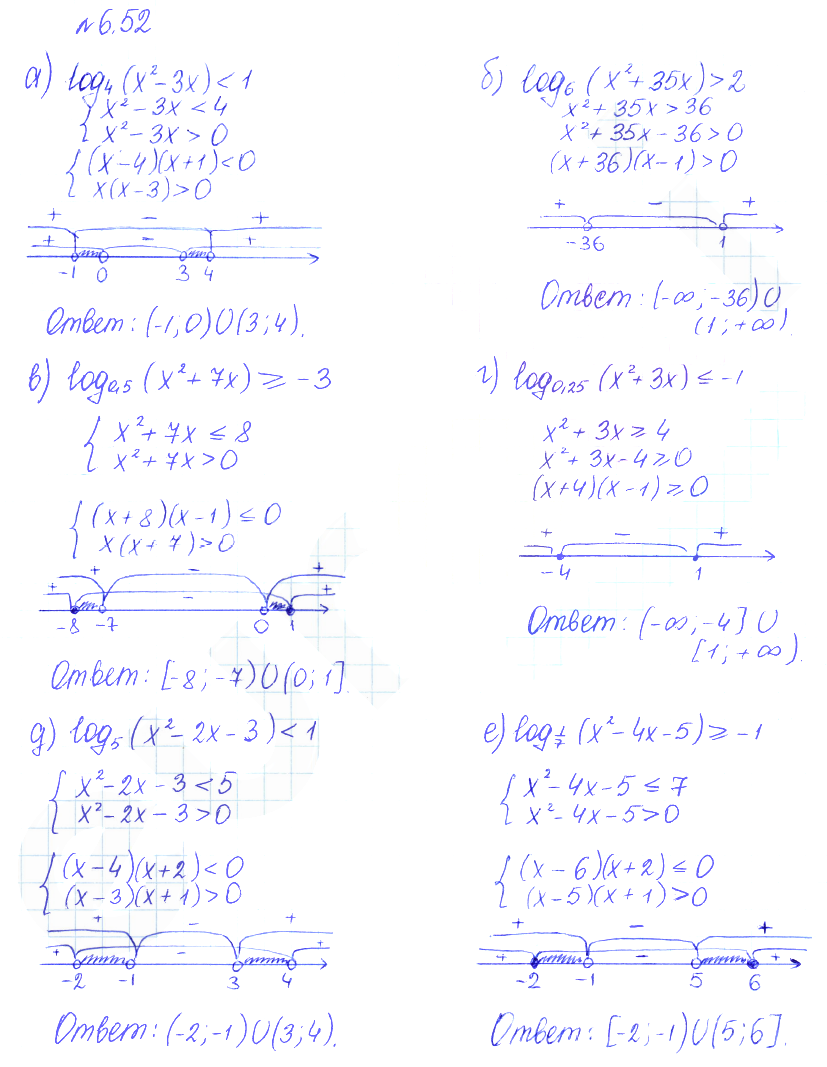 №6.52
а) log₄(x²-3x)<1
{x²-3x<4
{x²-3x>0
{(x-4)(x+1)<0
{x(x-3)>0
+ - +
+ - +
-1 0 3 4
Ответ: (-1;0)∪(3;4).
б) log₆(x²+35x)>2
x²+35x>36
x²+35x-36>0
(x+36)(x-1)>0
+ - +
-36 1
Ответ: (-∞;-36)∪
(1;+∞).
в) log₀,₅(x²+7x)≥-3
{x²+7x≤8
{x²+7x>0
{(x+8)(x-1)≤0
{x(x+7)>0
+ - +
+ - +
-8 -7 0 1
Ответ: [-8;-7)∪(0;1].
г) log₀,₂₅(x²+3x)≤-1
x²+3x≥4
x²+3x-4≥0
(x+4)(x-1)≥0
+ - +
-4 1
Ответ: (-∞;-4]∪
[1;+∞).
д) log₅(x²-2x-3)<1
{x²-2x-3<5
{x²-2x-3>0
{(x-4)(x+2)<0
{(x-3)(x+1)>0
+ - +
+ - +
-2 -1 3 4
Ответ: (-2;-1)∪(3;4).
е) log 1/7 (x²-4x-5)≥-1
{x²-4x-5≤7
{x²-4x-5>0
{(x-6)(x+2)≤0
{(x-5)(x+1)>0
+ - +
+ - +
-2 -1 5 6
Ответ: [-2;-1)∪(5;6].